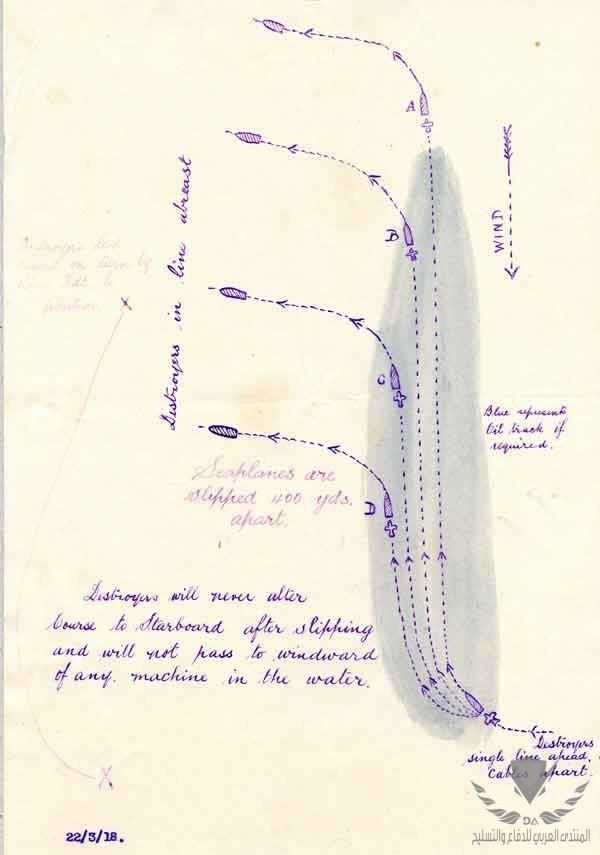 A
WIND
B
Destroyers in line abreast
C
Blue represents
Oil track if
required.
Seaplanes are
slipped 400 yds.
apart.
D
Destroyers will never alter
Course to Starboard after slipping
and will not pass to windward
of any machine in the water.
Destroyers
single line ahead,
Cables apart.
X
X
22/3/18.
DA
المنتدى العربي للدفاع والتسليح